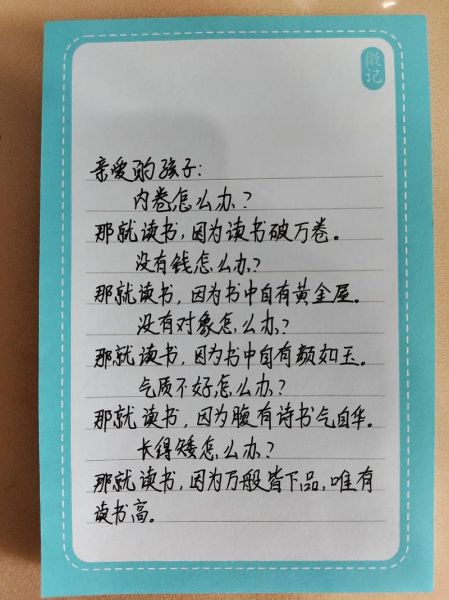 微记
亲爱的孩子：
内卷怎么办？
那就读书，因为读书破万卷。
没有钱怎么办？
那就读书，因为书中自有黄金屋。
没有对象怎么办？
那就读书，因为书中自有颜如玉。
气质不好怎么办？
那就读书，因为腹有诗书气自华。
长得矮怎么办？
那就读书，因为万般皆下品，唯有
读书高。